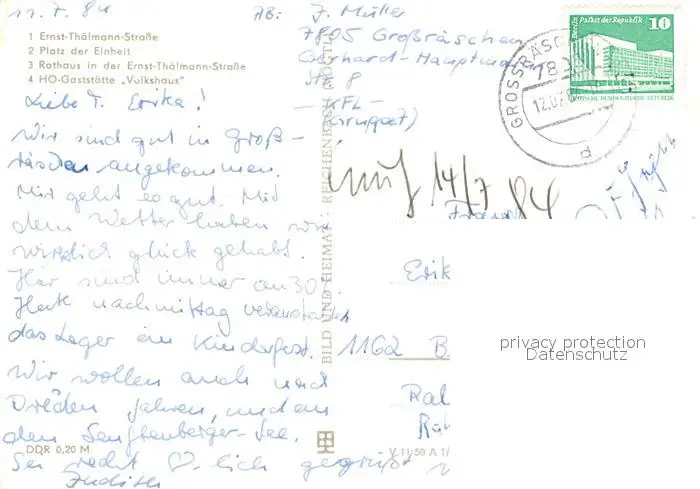 11.7.84
1 Ernst-Thälmann-Straße
2 Platz der Einheit
3 Rathaus in der Ernst-Thälmann-Straße
4 HO-Gaststätte „Volkshaus"
Liebe T. Erika!
Wir sind gut in Groß-
räschen angekommen.
Mir geht es gut. Mit
dem Wetter haben wir
wirklich glück gehabt.
Hier sind immer an 30°.
Heute nachmittag veranstaltet
das Lager ein Kinderfest.
Wir wollen auch nach
Dresden fahren, und an
dem Senftenberger-See.
Sei recht ♡lich gegrüßt
Judith
DDR 0,20 M
BILD UND HEIMAT REICHENBACH (VOGTL)
V 11 50 A 1/
AB: J. Müller
7805 Großräschen
Gerhardt-Hauptmann
8
14/7 84
Berlin, Palast der Republik
10
DEUTSCHE DEMOKRATISCHE REPUBLIK
GROSSRÄSCHEN
12.07
d
Erik
1162 B
privacy protection
Datenschutz